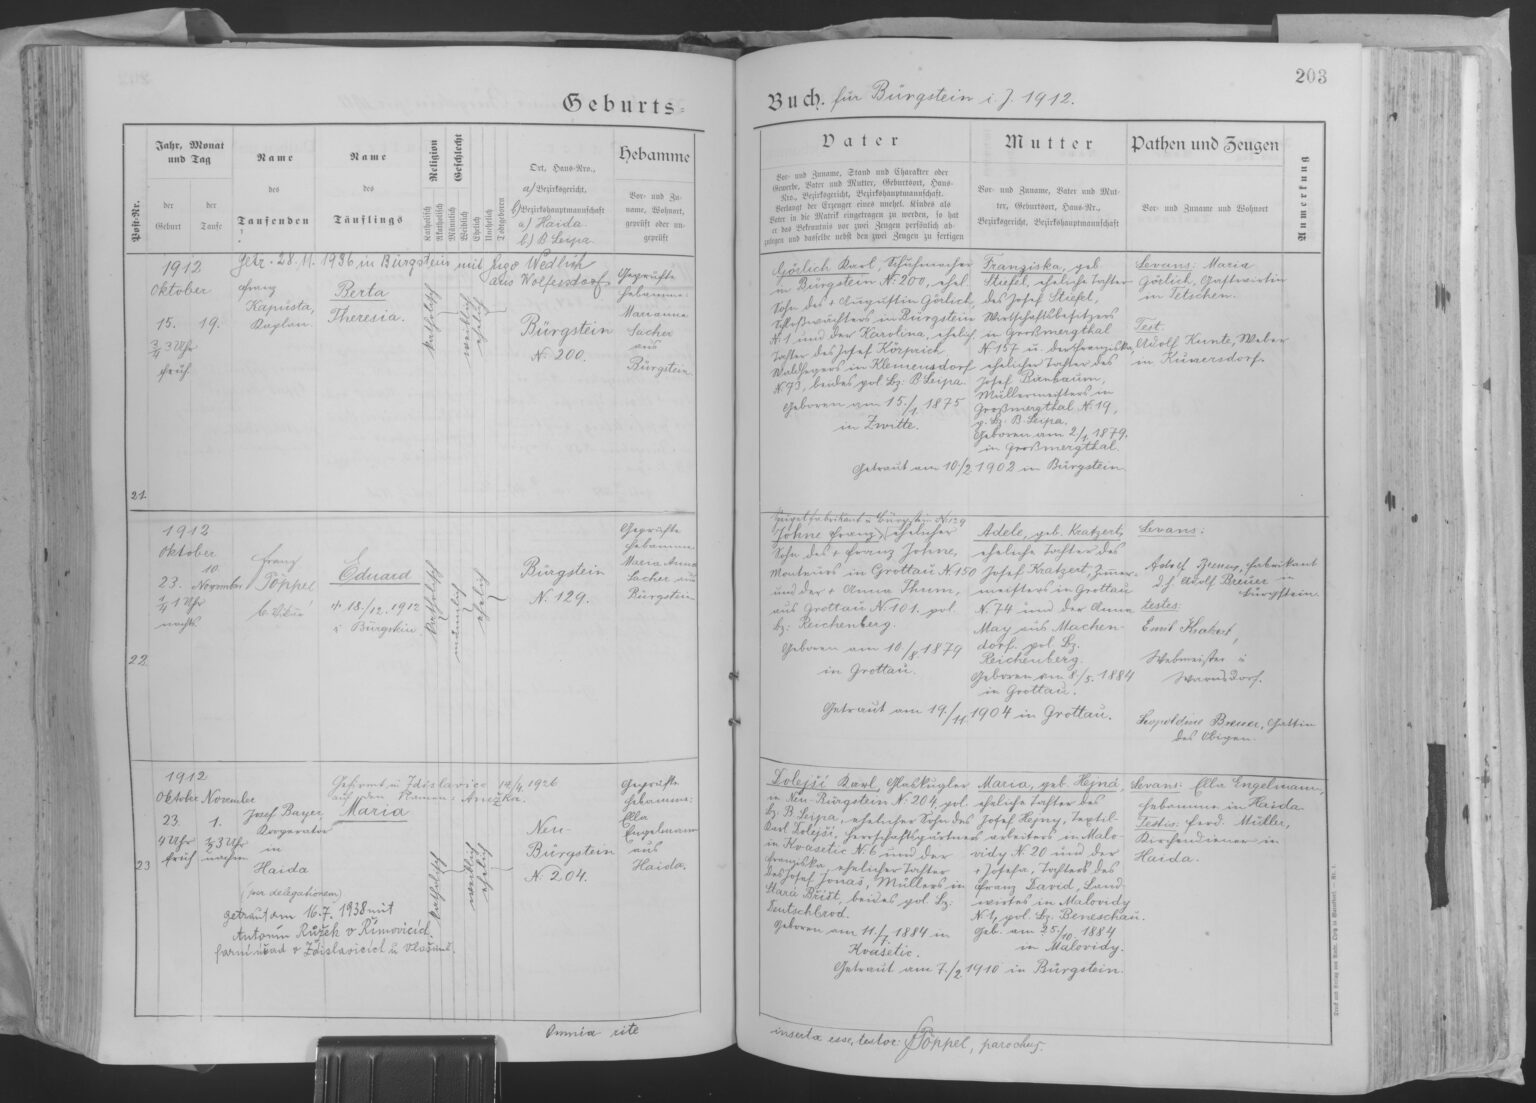 203
Geburts-
Buch. für Bürgstein i. J. 1912.
Post-Nr.
Jahr, Monat
und Tag
der
Geburt
der
Taufe
Name
des
Taufenden
Name
des
Täuflings
Religion
Katholisch
Akatholisch
Geschlecht
Männlich
Weiblich
Ehelich
Unehelich
Todtgeboren
Ort, Haus-Nro.,
a) Bezirksgericht,
b) Bezirkshauptmannschaft
a) Haida
b) B. Leipa.
Hebamme
Vor- und Zu-
name, Wohnort,
geprüft oder un-
geprüft
Vater
Vor- und Zuname, Stand und Charakter oder
Gewerbe, Vater und Mutter, Geburtsort, Haus-
Nro., Bezirksgericht, Bezirkshauptmannschaft.
Verlangt der Erzeuger eines unehel. Kindes als
Vater in die Matrik eingetragen zu werden, so hat
er das Bekenntnis vor zwei Zeugen persönlich ab-
zulegen und dasselbe nebst den zwei Zeugen zu fertigen
Mutter
Vor- und Zuname, Vater und Mut-
ter, Geburtsort, Haus-Nr.,
Bezirksgericht, Bezirkshauptmannschaft
Pathen und Zeugen
Vor- und Zuname und Wohnort
Anmerkung
21.
1912
Oktober
15. 19.
3/4 3 Uhr
früh.
Getr. 28. 11. 1936 in Bürgstein mit Hugo Wedlich
aus Wolfersdorf
Franz
Kapusta,
Kaplan.
Berta
Theresia.
katholisch
weiblich
ehelich
Bürgstein
N. 200.
Geprüfte
Hebamme:
Marianne
Sacher
aus
Bürgstein.
Görlich Karl, Schuhmacher
in Bürgstein N. 200, ehel.
Sohn des + Augustin Görlich,
Schloßwächters in Bürgstein
N. 1 und der Karolina, ehelich.
Tochter des Josef Körprich
Waldhegers in Klemensdorf
N. 93, beides pol. Bz. B. Leipa.
Geboren am 15./1. 1875
in Zwitte.
Franziska, geb.
Stiefel, eheliche Tochter
des Josef Stiefel,
Wirtschaftsbesitzers
in Großmergthal
N. 157 u. der Franziska,
ehelicher Tochter des
Josef Birnbaum,
Müllermeisters in
Großmergthal N. 19,
p. Bz. B. Leipa.
Geboren am 2./1. 1879.
in Großmergthal.
Getraut am 10./2. 1902 in Bürgstein.
Levans: Maria
Görlich, Gastwirtin
in Tetschen.
Test.
Adolf Kunte, Weber
in Kunersdorf.
22.
1912
Oktober
10.
23. November
1/4 1 Uhr
nachts.
Franz
Pöppel
Eduard
+ 18./12. 1912
i. Bürgstein
katholisch
männlich
ehelich
Bürgstein
N. 129.
Geprüfte
Hebamme
Maria Anna
Sacher aus
Bürgstein
Spiegelfabrikant i. Bürgstein N. 129
Johne Franz, ehelicher
Sohn des + Franz Johne,
Monteurs in Grottau N. 150
und der + Anna Thum,
aus Grottau N. 101. pol.
Bz. Reichenberg.
Geboren am 10./8. 1879
in Grottau.
Adele, geb. Kratzert,
eheliche Tochter des
Josef Kratzert, Zimmer-
meisters in Grottau
N. 74 und der Anna
May aus Machen-
dorf. pol. Bz.
Reichenberg.
Geboren am 8./5. 1884
in Grottau.
Getraut am 19./11. 1904 in Grottau.
Levans:
Adolf Breuer, Fabrikant
d. F. Adolf Breuer in
Bürgstein.
testes:
Emil Kratzert,
Webmeister i.
Warnsdorf.
Leopoldine Breuer, Gattin
des Obigen.
23
1912
Oktober November
23. 1.
4 Uhr 1/2 3 Uhr
früh nachm.
Josef Bayer
Korperator
in
Haida
(per delegationem)
Gefirmt in Zdislavice 14/4. 1926
auf den Namen: Anežka.
Maria
getraut am 16. 7. 1938 mit
Antonín Růžek v Římovicích.
farní úřad v Zdislavicích u Vlašimě.
katholisch
weiblich
ehelich
Neu
Bürgstein
N. 204.
Geprüfte
Hebamme:
Ella
Engelmann
aus
Haida.
Dolejší Karl, Glaskugler
in Neu-Bürgstein N. 204, pol.
Bz. B. Leipa, ehelicher Sohn des
Karl Dolejší, Herrschaftsgärtners
in Kvasetic N. 6 und der
Franziska, ehelicher Tochter
des Josef Jonaš, Müllers in
Stará Břišt, beides pol. Bz:
Deutschbrod.
Geboren am 11./7. 1884 in
Kvasetic.
Maria, geb. Hejná,
eheliche Tochter des
Josef Hejny, Textil-
arbeiters in Malo-
vidy N. 20 und der
+ Josefa, Tochters des
Franz David, Land
wirtes in Malovidy
N. 1, pol. Bz. Beneschau.
Geb. am 25./10. 1884
in Malovidy.
Getraut am 7./2. 1910 in Bürgstein.
Levans: Ella Engelmann,
Hebamme in Haida.
Testis: Ferd. Müller,
Kirchendiener in
Haida.
Omnia rite
inserta esse, testor: Pöppel, parochus.